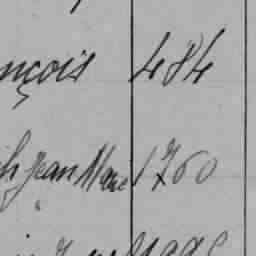 nçois 484
h Jean Marie 1760